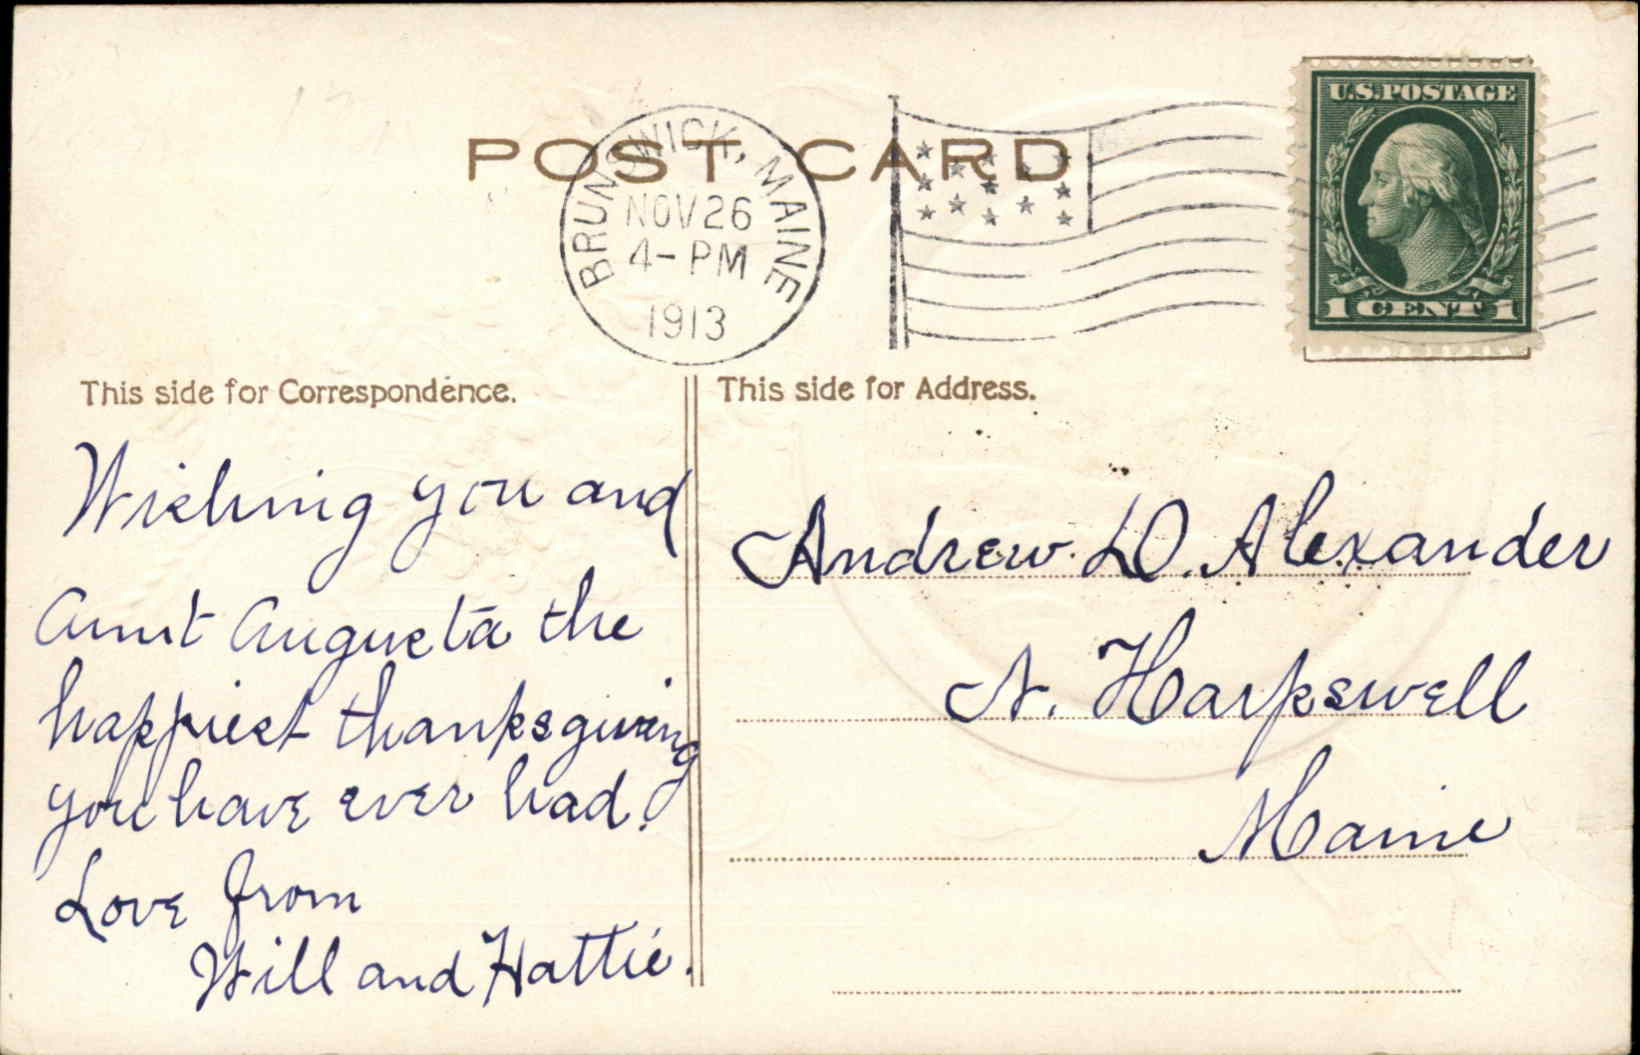 POST CARD
BRUNSWICK, MAINE
NOV 26
4-PM
1913
U.S. POSTAGE
1 CENT 1
This side for Correspondence.
Wishing you and
Aunt Augusta the
happiest thanksgiving
you have ever had.
Love from
Will and Hattie.
This side for Address.
Andrew D. Alexander
N. Harpswell
Maine